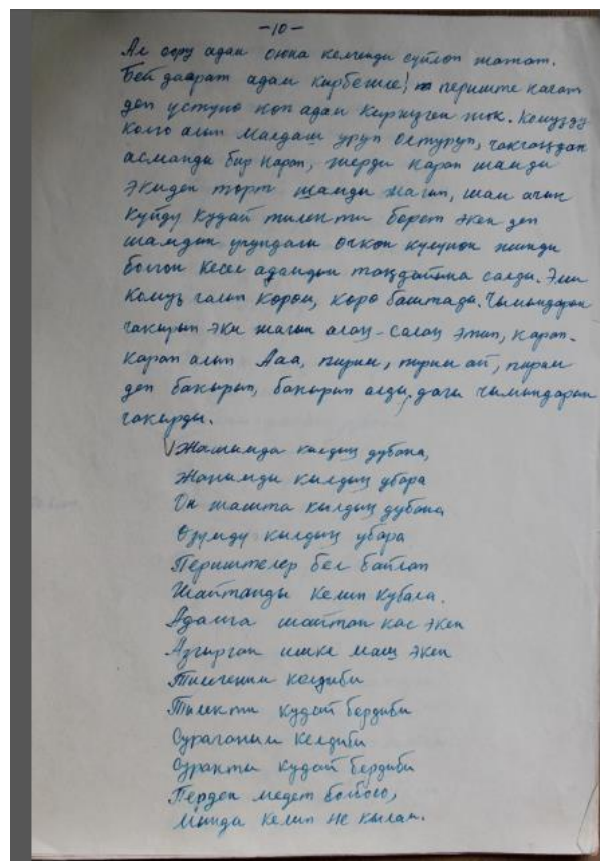 -10-
Ал оору адам оюна келгенди сүйлөп жатат.
Бей даарат адам кирбеңле! периште качат
деп үстүнө көп адам киргизген жок. Комузду
колго алып малдаш уруп олтуруп, чакчаңдап
асманды бир карап, жерди карап шамды
экиден төрт шамды жагып, шам ачык
күйдү кудай тилекти берет экен деп
шамдын учундагы өчкөн күлүнөн жинди
болгон кесел адамдын таңдайына салды. Эми
комуз чалып көрөм, көрө баштады. Чымындарын
чакырып эки жагын алаң-салаң этип, карап-
карап алып Ааа, пирим, пирим ай, пирим
деп бакырып, бакырып алды, дагы чымындарын
чакырды.
Жашымда кылдың дубана,
Жанымды кылдың убара
Он жашта кылдың дубана
Өзүмдү кылдың убара
Периштелер бел байлап
Шайтанды келип кубала.
Адамга шайтан кас экен
Азгырган ишке маш экен
Тилегеним келдиби
Тилекти кудай бердиби
Сураганым келдиби
Суракты кудай бердиби
Перден медет болбосо,
Мында келип не кылам.